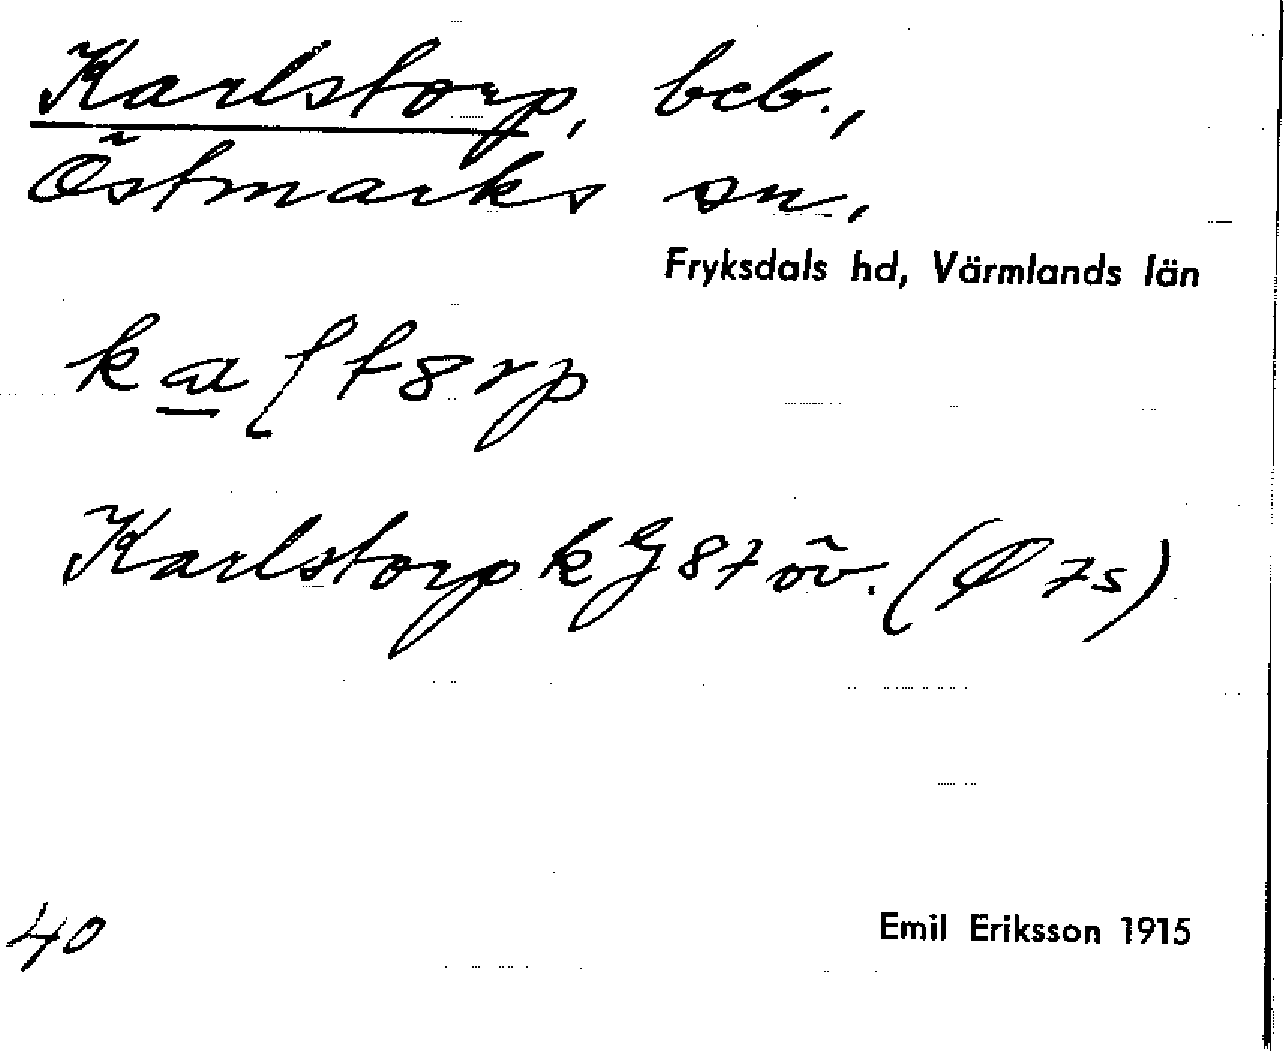 Karlstorp, beb.,
Östmarks sn,
Fryksdals hd, Värmlands län
kaʃt8rp
Karlstorp k G 87 öv. ( 7s)
40
Emil Eriksson 1915